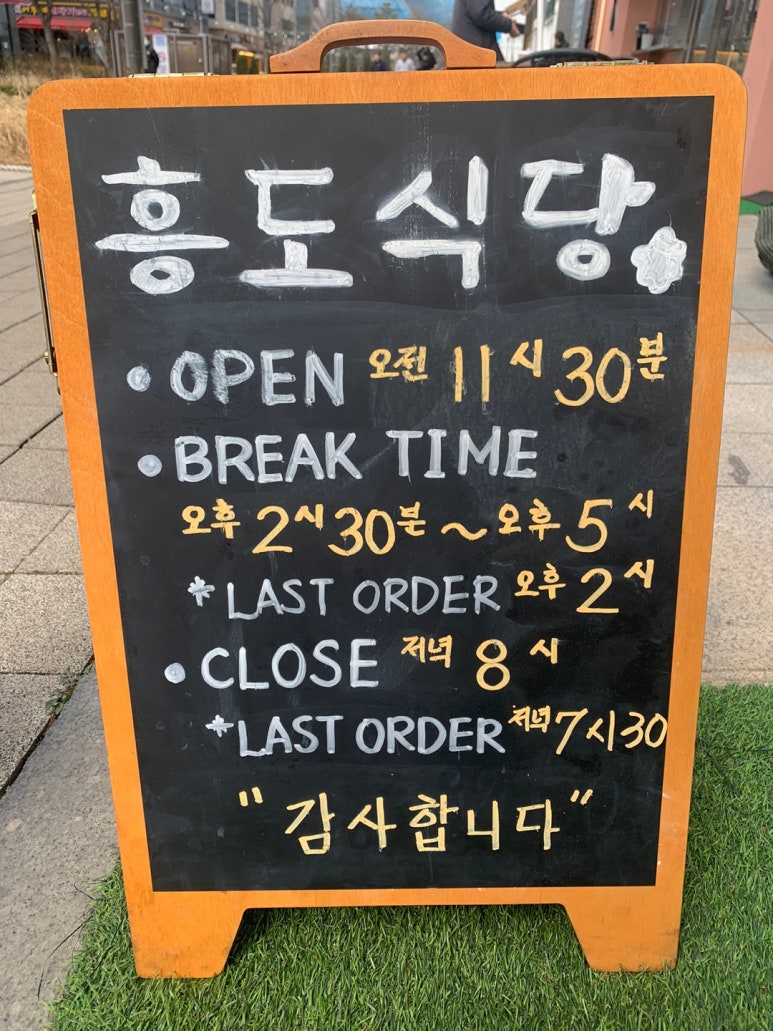 흥도식당
• OPEN 오전 11시 30분
• BREAK TIME
오후 2시 30분 ~ 오후 5시
* LAST ORDER 오후 2시
• CLOSE 저녁 8시
* LAST ORDER 저녁 7시30
"감사합니다"